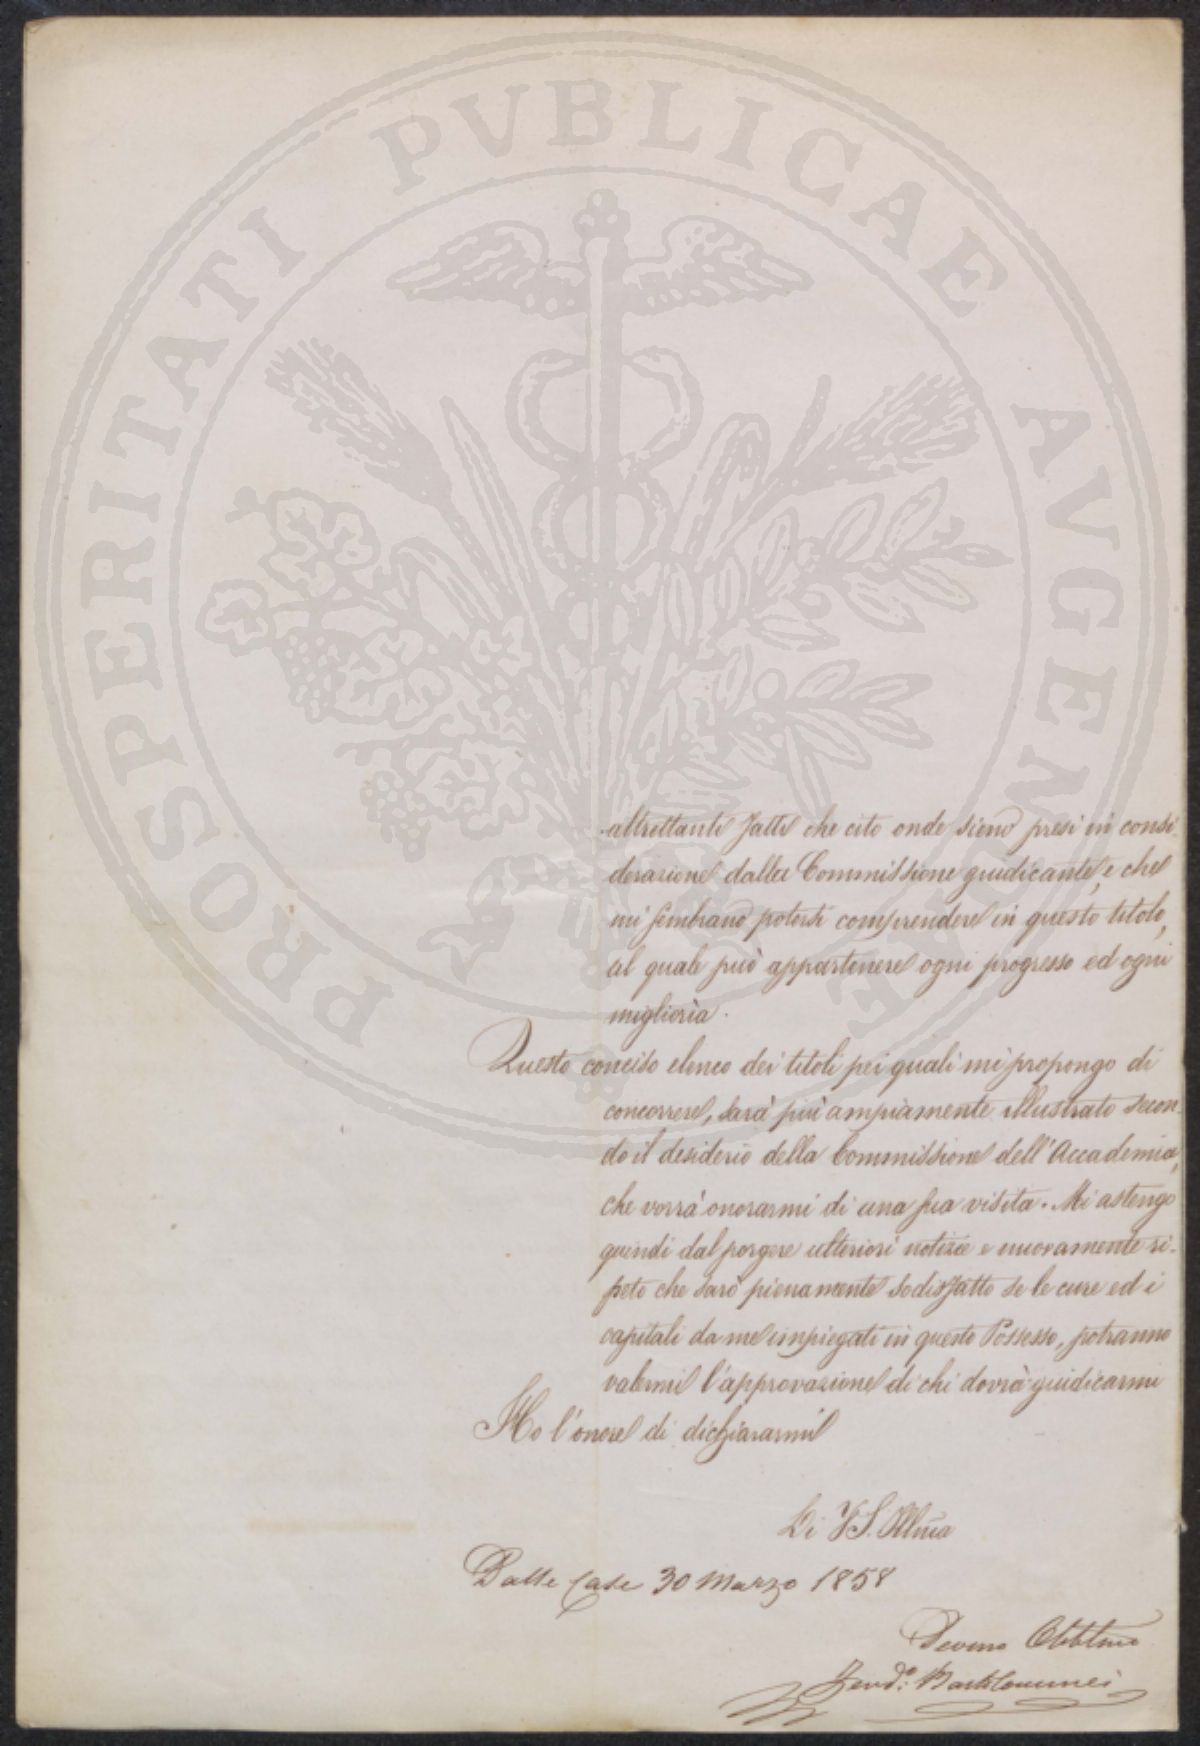 PROSPERITATI PVBLICAE AVGENDAE
altrettanti fatti che cito onde sieno presi in consi-
derazione dalla Commissione giudicante, e che
mi sembrano potersi comprendere in questo titolo,
al quale può appartenere ogni progresso ed ogni
miglioria.
Questo conciso elenco dei titoli pei quali mi propongo di
concorrere, sarà più ampiamente illustrato secon-
do il desiderio della Commissione dell'Accademia,
che vorrà onorarmi di una sua visita. Mi astengo
quindi dal porgere ulteriori notizie e nuovamente ri-
peto che sarò pienamente sodisfatto se le cure ed i
capitali da me impiegati in questo Possesso, potranno
valermi l'approvazione di chi dovrà giudicarmi
Ho l'onore di dichiararmi
Di V.S. Illma
Dalle Case 30 Marzo 1858
Devmo Obbmo
Ferdo: Bartolommei